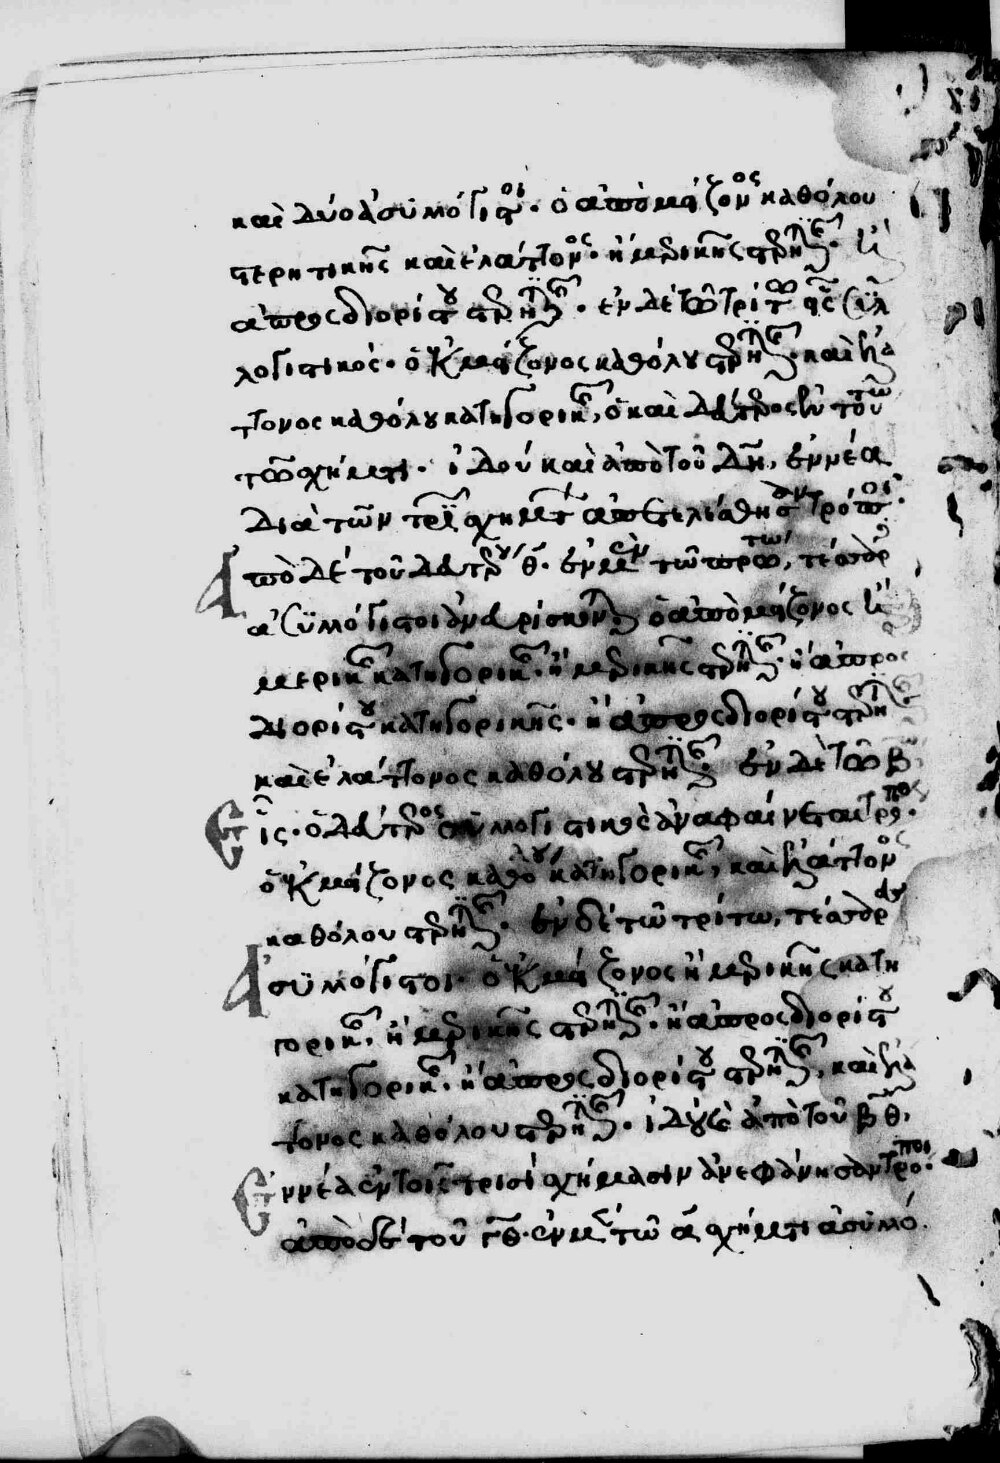 καὶ δύο ἀσυλλόγιστοι· ὁ ἀπὸ μείζονος καθόλου
στερητικῆς καὶ ἐλάττονος· ἢ μερικῆς στερητικῆς· ἢ
ἀπροσδιορίστου στερητικῆς· ἐν δὲ τῶ τρίτω εἷς συλ
λογιστικός· ὁ ἐκ μείζονος καθόλου στερητικῆς· καὶ ἐλά
ττονος καθόλου κατηγορικῆς, ὁ καὶ δεύτερος ἐν τούτω
τῶ σχήματι· ἰδοὺ καὶ ἀπὸ τοῦ ἐννέα
διὰ τῶν τριῶν σχημάτων ἀπετελέσθησαν τρόποι·
Ἀπὸ δὲ τοῦ δευτέρου θ· ἐν μὲν τῶ πρώτω, τέσσαρες
ἀσυλλόγιστοι ἀναρίσκονται ὁ ἀπὸ μείζονος ἢ
μερικῆς κατηγορικῆς· ἢ μερικῆς στερητικῆς· ἢ ἀπροσ
διορίστου κατηγορικῆς· ἢ ἀπροσδιορίστου στερητικῆς
καὶ ἐλάττονος καθόλου στερητικῆς· ἐν δὲ τῶ β
εἷς· ὁ δεύτερος συλλογιστικὸς ἀναφαίνεται τρόπος·
ὁ ἐκ μείζονος καθόλου κατηγορικῆς, καὶ ἐλάττονος
καθόλου στερητικῆς· ἐν δὲ τῶ τρίτω, τέσσαρες
Ἀσυλλόγιστοι· ὁ ἐκ μείζονος ἢ μερικῆς κατη
γορικῆς· ἢ μερικῆς στερητικῆς· ἢ ἀπροσδιορίστου
κατηγορικῆς· ἢ ἀπροσδιορίστου στερητικῆς, καὶ ἐλά
ττονος καθόλου στερητικῆς· ἰδοὺ καὶ ἀπὸ τοῦ β θ,
Ἐννέα ἐν τοῖς τρισὶ σχήμασιν ἀνεφάνησαν τρόποι·
ἀπὸ δὲ τοῦ γ θ· ἐν μὲν τῶ α σχήματι ἀσυλλό